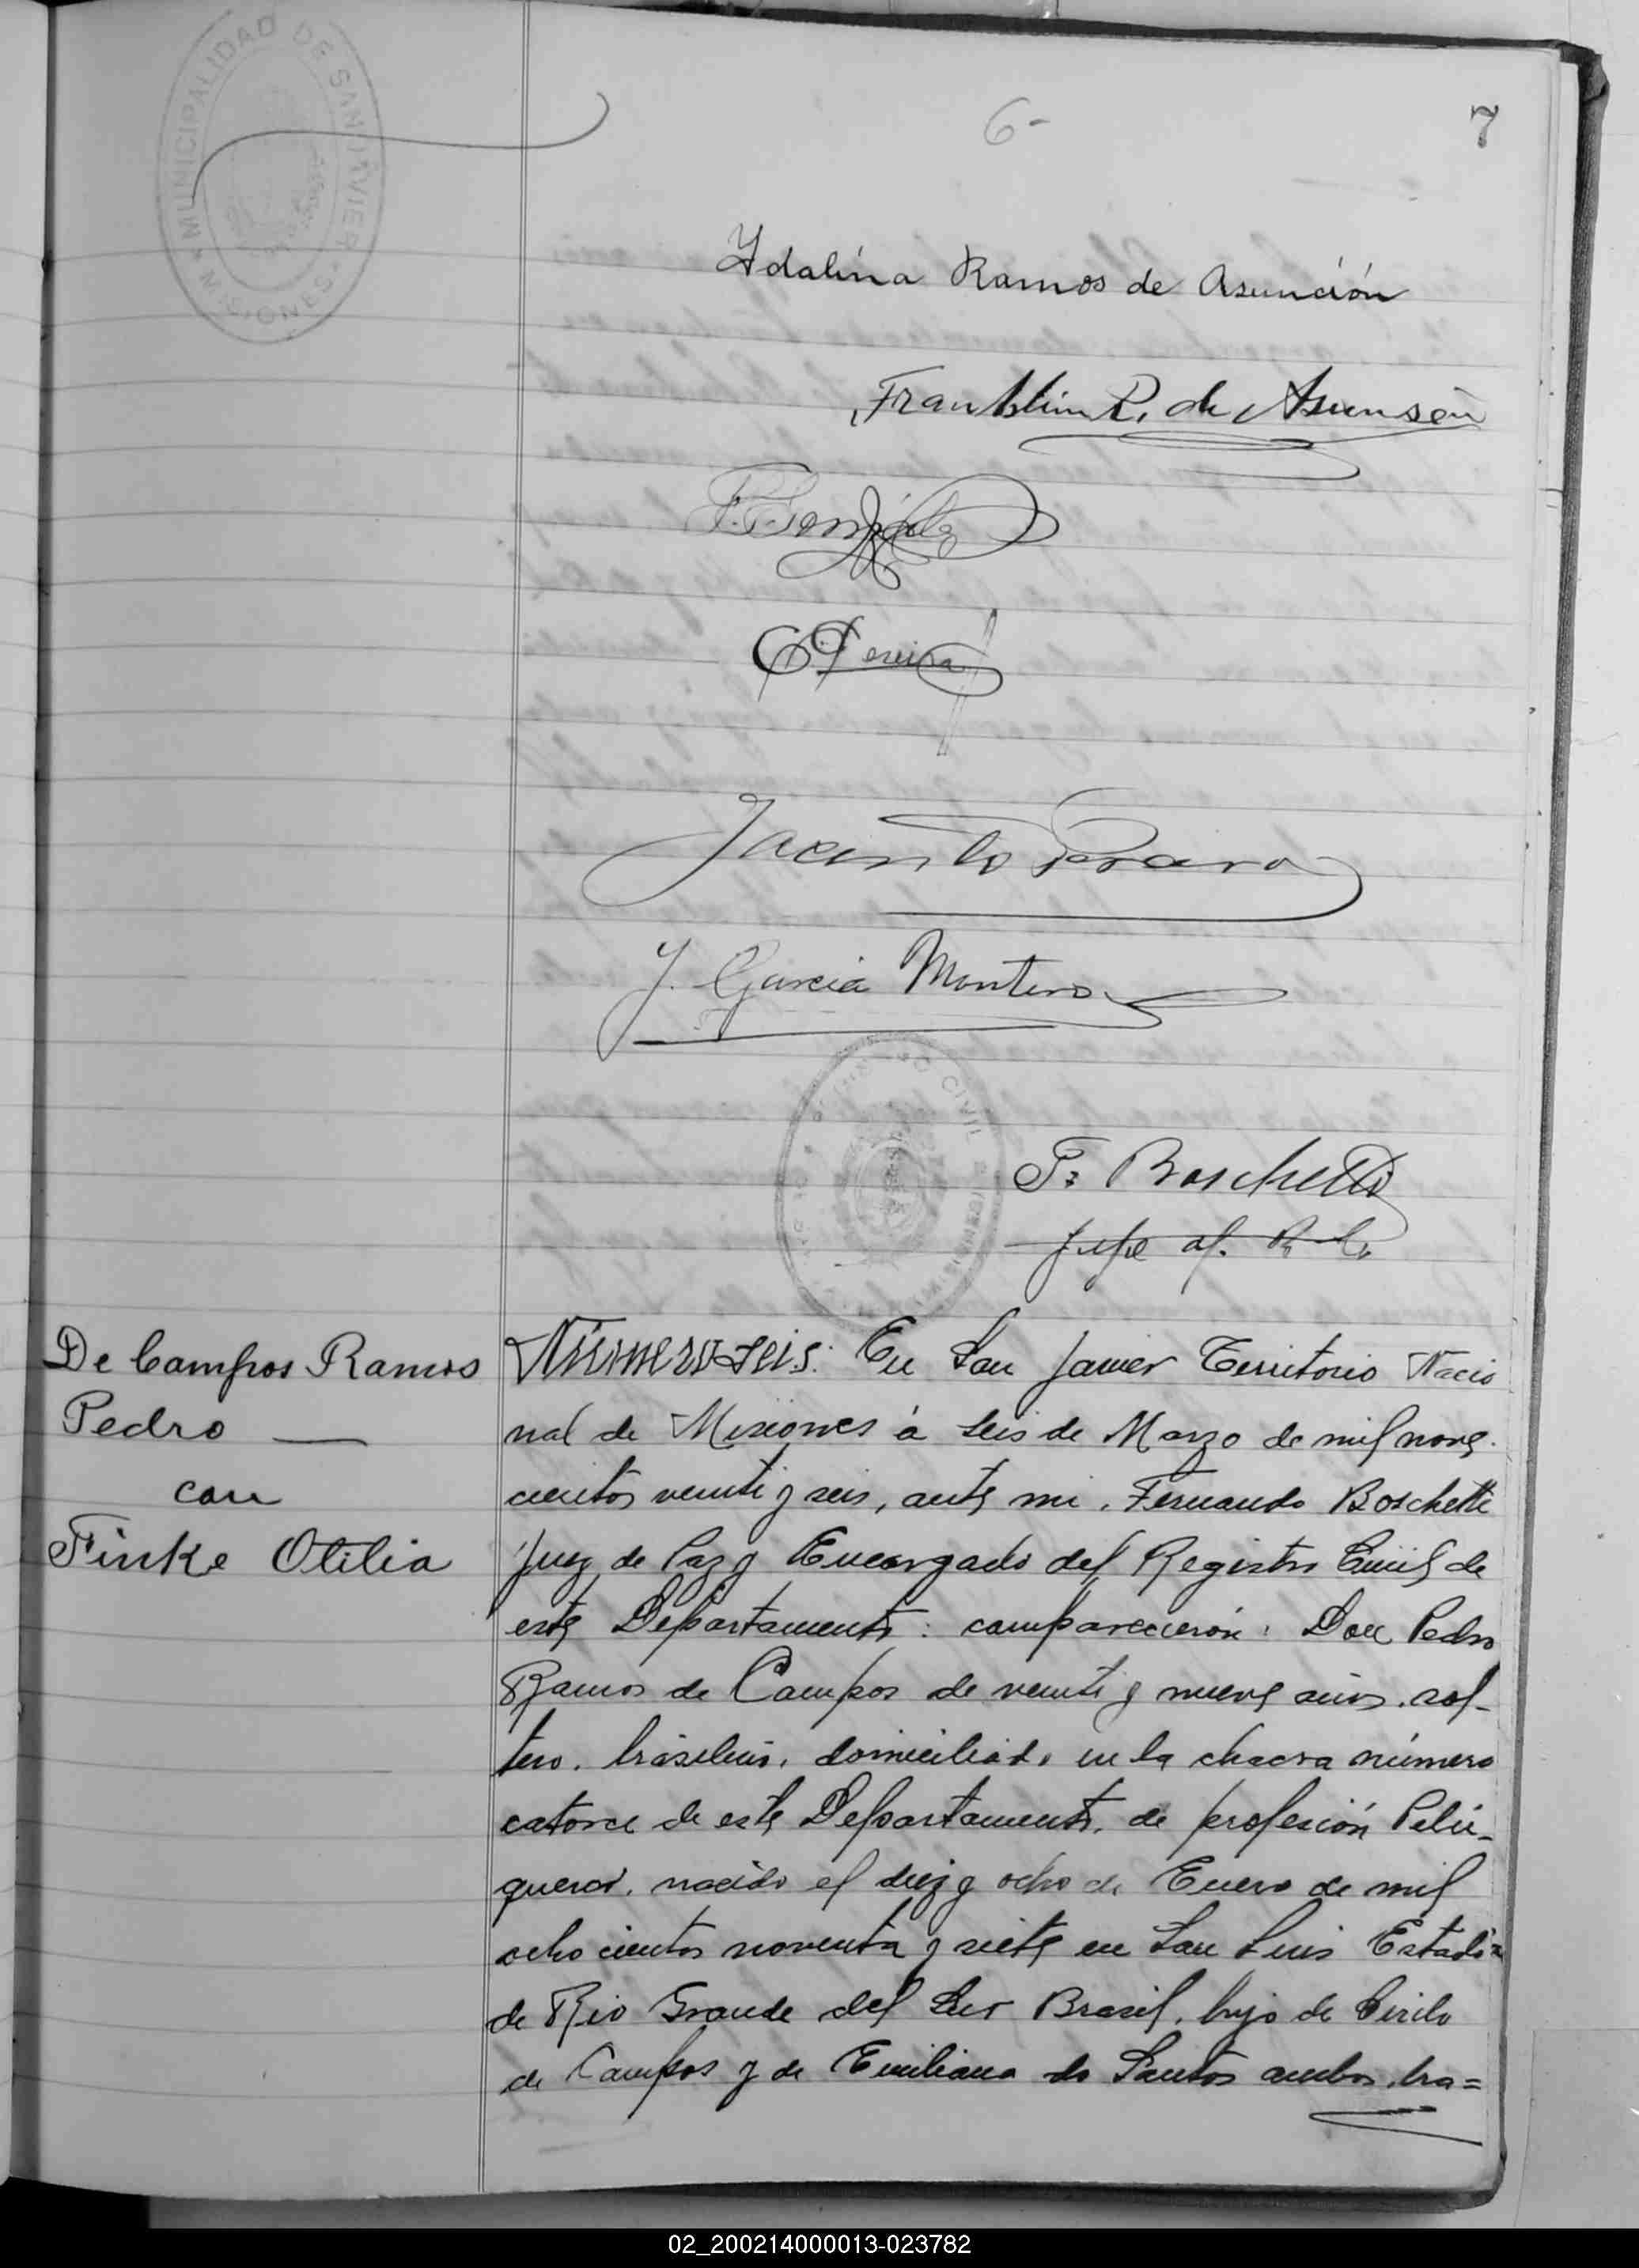 MUNICIPALIDAD DE SAN JAVIER
MISIONES
6-
7
Ydalina Ramos de Asunción
Franklin R. de Asunsón
Pereira
Jacinto
J. García Montero
CIVIL
F. Boschetti
Jefe of. R. C.
De Campos Ramos
Pedro —
con
Finke Otilia
Número seis: En San Javier Territorio Nacio
nal de Misiones á seis de Marzo de mil nove-
cientos veinti y seis, ante mi, Fernando Boschetti
Juez de Paz y Encargado del Registro Civil de
este Departamento: comparecieron: Don Pedro
Ramos de Campos de veinti y nueve años, sol-
tero, brasilero, domiciliado en la chacra número
catorce de este Departamento, de profesión Pelu-
quero, nacido el diez y ocho de Enero de mil
ocho cientos noventa y siete en San Luis Estado
de Rio Grande del Sur Brasil, hijo de Cirilo
de Campos y de Emiliana do Santos ambos bra=
02_200214000013-023782